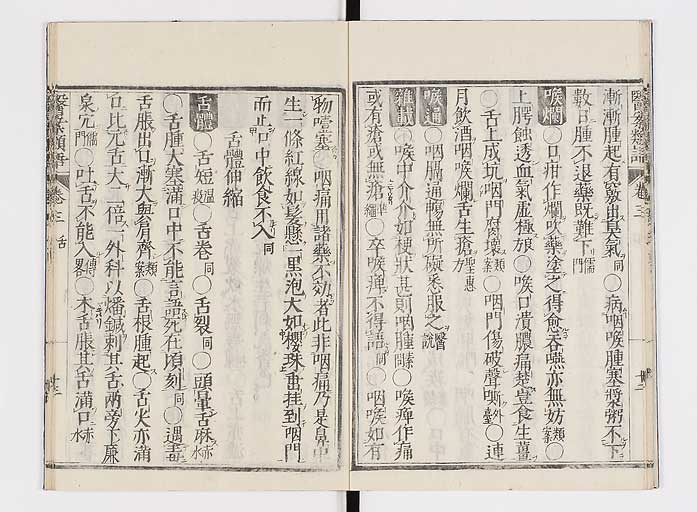 漸漸腫起有竅出臭氣同〇病咽喉腫塞漿粥不下
數日腫不退藥既難下儒門
喉爛〇口疳作爛吹藥塗之得愈吞嚥亦無妨類案〇
上腭蝕透血氣虛極娘〇喉口潰膿痛楚豈食生薑
〇舌上成坑咽門腐壞類案〇咽門傷破聲嘶外臺〇連
月飲酒咽喉爛舌生瘡聖惠方
喉通〇咽膈通暢無所礙悉服之醫說
雜載〇喉中介介如梗狀甚則咽腫〇喉痺作痛
或有瘡或無瘡準繩〇卒喉痺不得語同〇咽喉如有
物噎塞〇咽痛用諸藥不効者此非咽痛乃是鼻中
生一條紅線如髮懸一黑泡大如櫻珠垂挂到咽門
而止口中飲食不入同
舌體伸縮
舌體〇舌短溫疫〇舌卷同〇舌裂同〇頭暈舌麻赤水
〇舌腫大塞滿口中不能言語死在頃刻同〇遇毒
舌脹出口漸大與肩齊類案〇舌根腫起〇舌火亦滿
口比元舌大二倍一外科以燔鍼刺其舌兩旁下廉
泉穴儒門〇吐舌不能入畧傳〇木舌脹其舌滿口赤水
醫案類語 卷三
醫案類語 卷三 舌